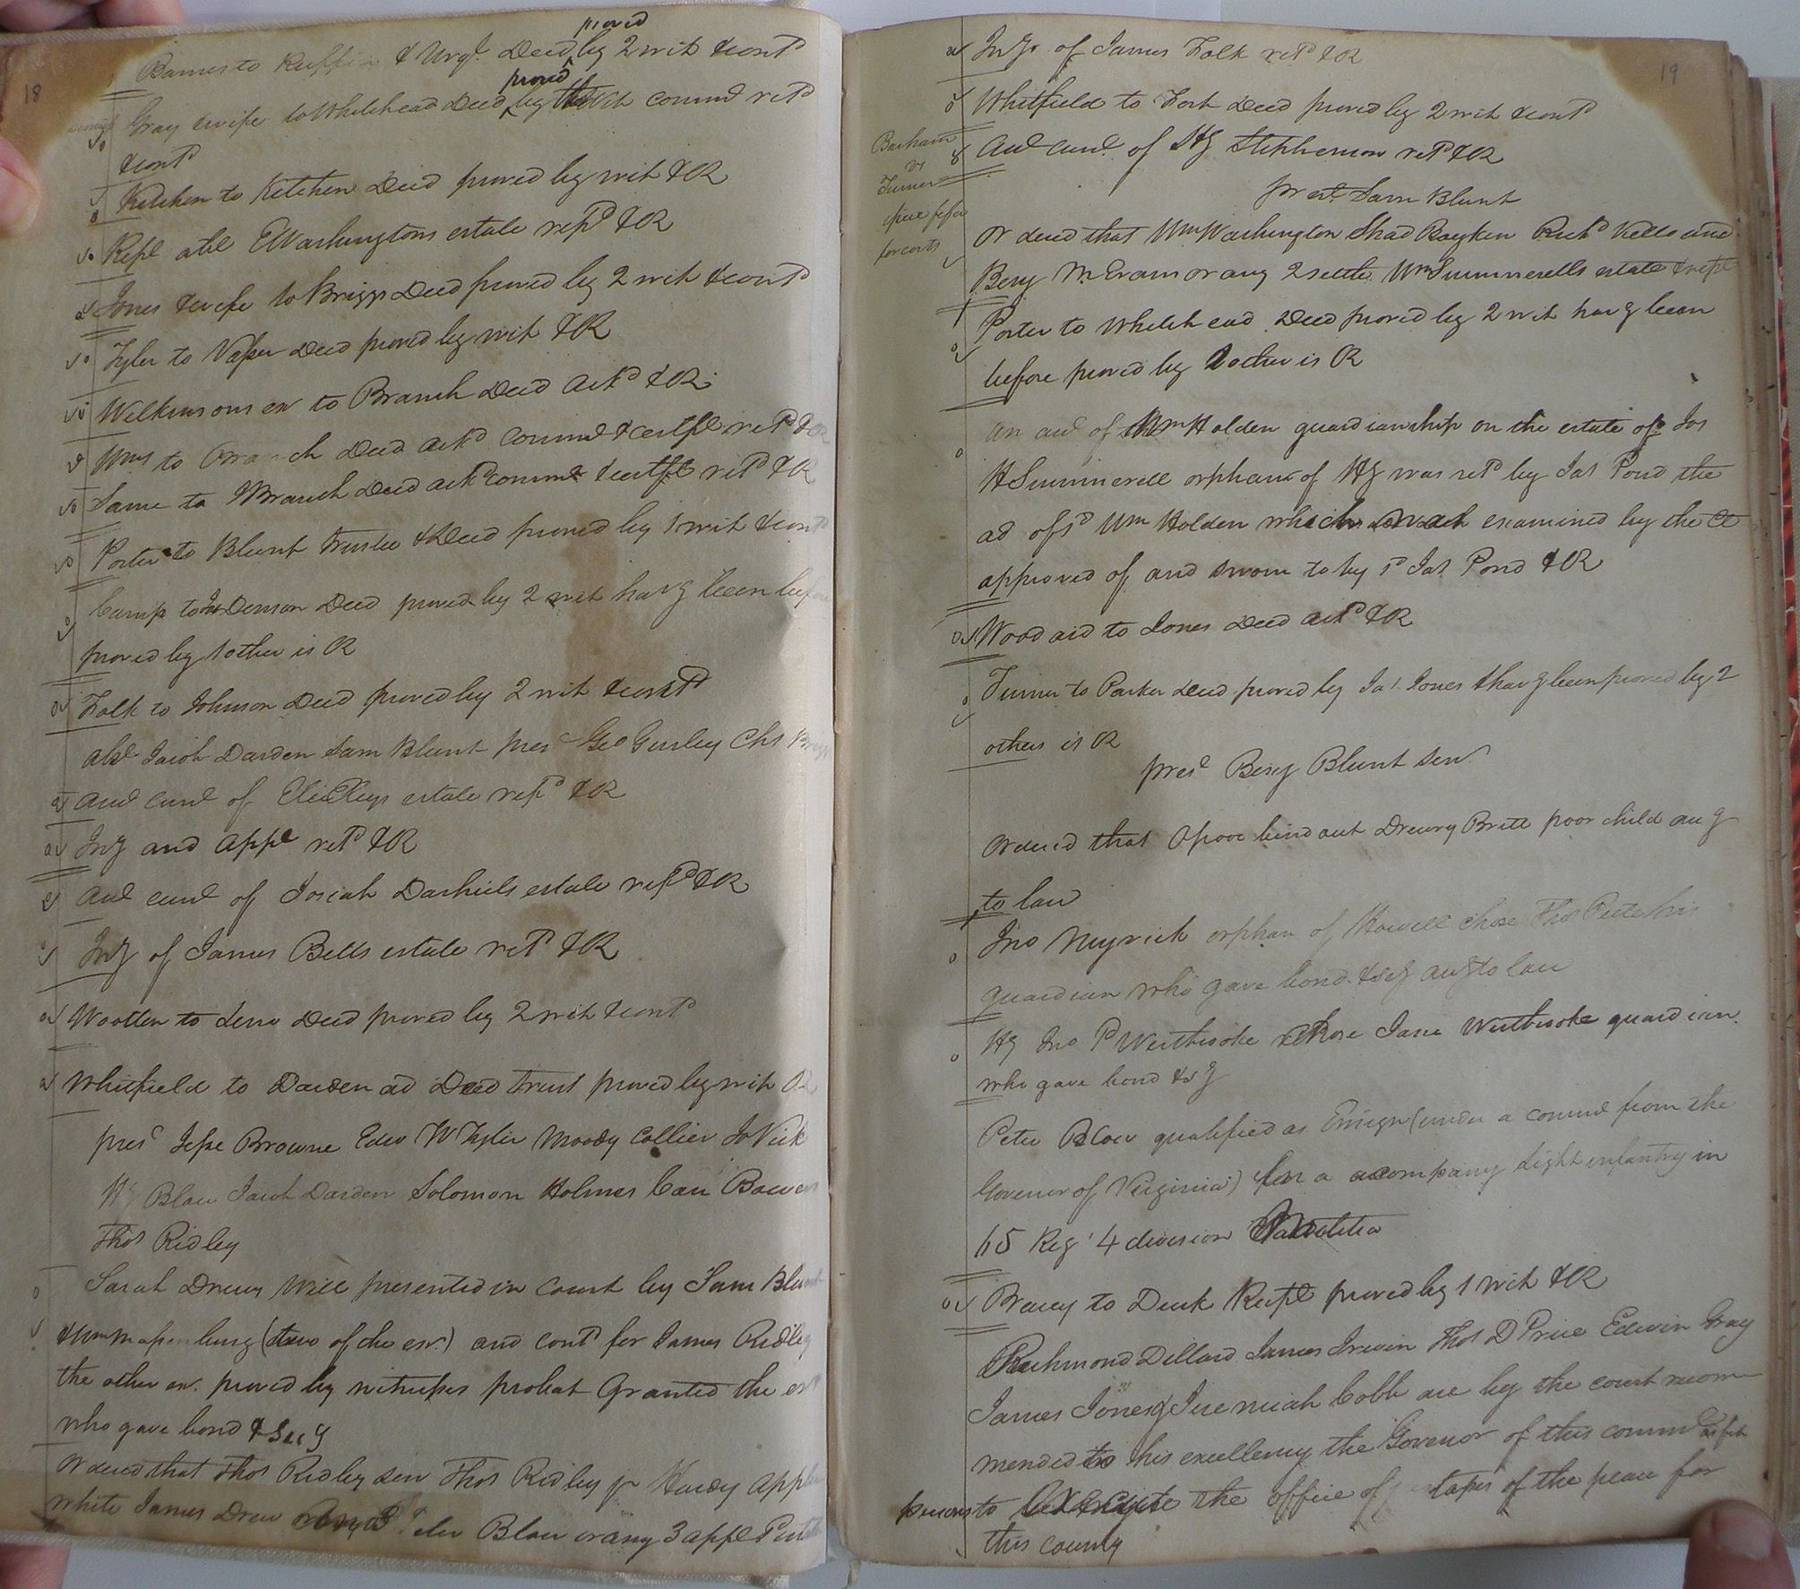 18
proved
Barnes to Ruffin & Urqt. Deed by 2 wit & contd
proved
Gray & wife to Whitehead Deed by wit commd retd
& contd
Kitchen to Kitchen Deed proved by wit & OR
Rept abl EWashingtons estate retd & OR
Jones & wife to Briggs Deed proved by 2 wit & contd
Tyler to Vasser Deed proved by wit & OR
Wilkinsons ex to Branch Deed ackd & OR
Wms to Branch Deed ackd commd & certfe retd & OR
Same to Branch Deed ackd commd & certfe retd & OR
Porter to Blunt trustee & Deed proved by 1 wit & contd
Camp to Denson Deed proved by 2 wit havg been
proved by 1 other is OR
Folk to Johnson Deed proved by 2 wit & contd
abst Jacob Darden Sam Blunt prest Geo Gurley Chs
Aud curnt of estate retd & OR
Invy and appt retd & OR
Aud curnt of Josiah Dashiels estate retd & OR
Invy of James Bells estate retd & OR
Wootten to Deed proved by 2 wit & contd
Whitfield to Darden ad Deed trust proved by wit OR
prest Jesse Browne Edw W Tyler Moody Collier
Hy Blow Jacob Darden Solomon Holmes Carr Bowers
Thos Ridley
Sarah Drews Will presented in Court by Sam Blunt
& Wm Massenburg (two of the exr.) and contd for James Ridley
the other ex. proved by witnesses probat Granted the ex
who gave bond & Secy
Ordered that Thos Ridley Sen Thos Ridley jr Hardy
white James Drew Blow or any 3 appe
19
Invy of James Folk retd & OR
Whitfield to Fort Deed proved by 2 wit & contd
Barham
vs
Turner
Aud curnt of Hy Stephenson retd & OR
prest Sam Blunt
for costs
Ordered that Wm Washington Shad Boykin Richd Kello and
Benj M. Evans or any 2 settle Wm Summerells estate & rept
Porter to Whitehead Deed proved by 2 wit havg been
before proved by 1 other is OR
An aud of Wm Holden guardianship on the estate of Jos
H Summerell orphan of Hy was retd by Jas Pond the
ad of sd Wm Holden which was examined by the Ct
approved of and sworn to by sd Jas Pond & OR
Woodard to Jones Deed ackd & OR
Turner to Parker Deed proved by Jas. Jones & havg been proved by 2
others is OR
prest Benj Blunt Senr
Ordered that Opoor bind out Drewry Britt poor child accg
to law
Jno Myrick orphan of Howell chose Thos Peete his
guardian who gave bond & Secy accg to law
Hy Jno P Westbrooke chose Jane Westbrooke guardian
who gave bond & Sy
Peter Blow qualified as Ensign (under a commd from the
Govenor of Virginia) for a company light infantry in
65 Regt 4 division
Bracey to Deed proved by 1 wit & OR
Richmond Dillard James Irwin Thos D Price Edwin Gray
James Jones & Jeremiah Cobb are by the court recom
mended to his excellency the Govenor of this commd as fit
persons to execute the office of of the peace for
this county